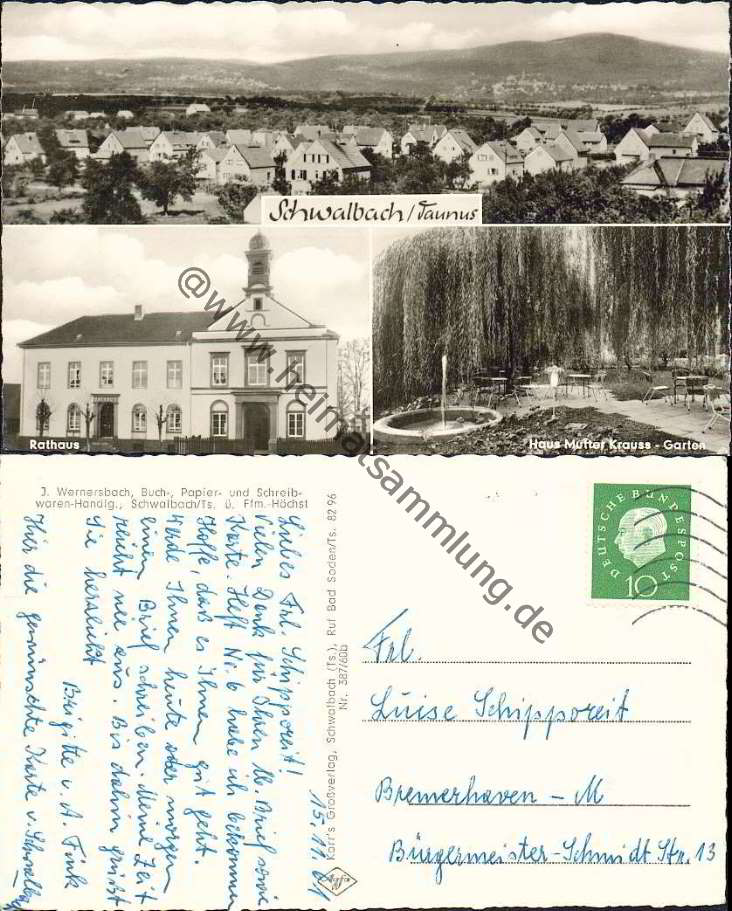 Schwalbach/Taunus
Rathaus
Haus Mutter Krauss - Garten
@www.heimatsammlung.de
J. Wernersbach, Buch-, Papier- und Schreib-
waren-Handlg., Schwalbach/Ts. ü. Ffm.-Höchst
15.11.61
Liebes Frl. Schipporeit!
Vielen Dank für Ihren lb. Brief sowie
Karte. Heft Nr. 6 habe ich bekommen
Hoffe, daß es Ihnen gut geht.
Werde Ihnen heute oder morgen
einen Brief schreiben. Meine Zeit
reicht nie aus. Bis dahin grüßt
Sie herzlichst
Brigitte v. A. Funk
Hier die gewünschte Karte v. Schwalbach
Karr's Großverlag, Schwalbach (Ts.), Ruf Bad Soden/Ts. 82 96
Nr. 387/60b
Agfa
DEUTSCHE BUNDESPOST
10
Frl.
Luise Schipporeit
Bremerhaven - M
Bürgermeister-Schmidt Str. 13